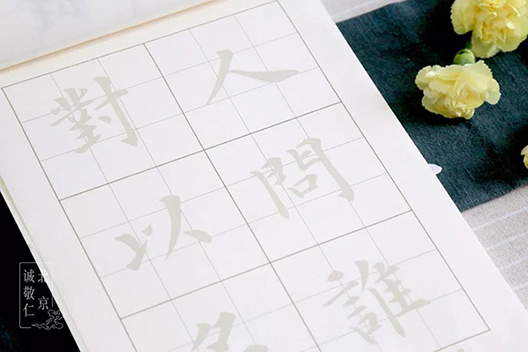 人問誰
對以名
北京
诚敬仁